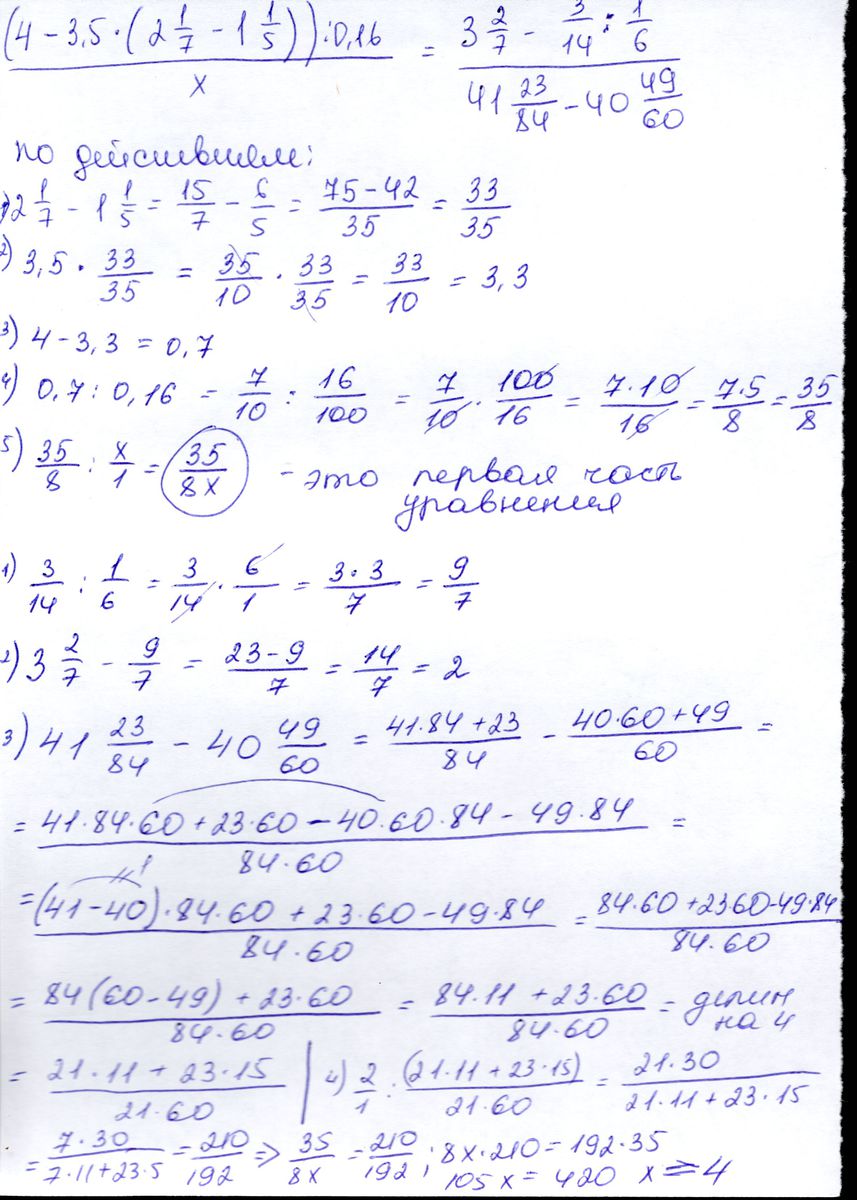 (4 - 3,5 · (2 1/7 - 1 1/5)) : 0,16 / x = (3 2/7 - 3/14 : 1/6) / (41 23/84 - 40 49/60)
по действием:
1) 2 1/7 - 1 1/5 = 15/7 - 6/5 = (75 - 42)/35 = 33/35
2) 3,5 · 33/35 = 35/10 · 33/35 = 33/10 = 3,3
3) 4 - 3,3 = 0,7
4) 0,7 : 0,16 = 7/10 : 16/100 = 7/10 · 100/16 = 7·10/16 = 7·5/8 = 35/8
5) 35/8 : x/1 = 35/8x - это первая часть
уравнения
1) 3/14 : 1/6 = 3/14 · 6/1 = 3·3/7 = 9/7
2) 3 2/7 - 9/7 = (23 - 9)/7 = 14/7 = 2
3) 41 23/84 - 40 49/60 = (41·84 + 23)/84 - (40·60 + 49)/60 =
= (41·84·60 + 23·60 - 40·60·84 - 49·84)/(84·60) =
1
= ((41 - 40)·84·60 + 23·60 - 49·84)/(84·60) = (84·60 + 23 60 - 49·84)/(84·60)
= (84(60 - 49) + 23·60)/(84·60) = (84·11 + 23·60)/(84·60) = делим
на 4
= (21·11 + 23·15)/(21·60) | 4) 2/1 : (21·11 + 23·15)/(21·60) = 21·30/(21·11 + 23·15)
= 7·30/(7·11 + 23·5) = 210/192 => 35/8x = 210/192 ; 8x·210 = 192·35
105x = 420 x = 4